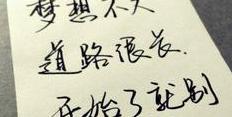 梦想不大
道路很长.
开始了就别